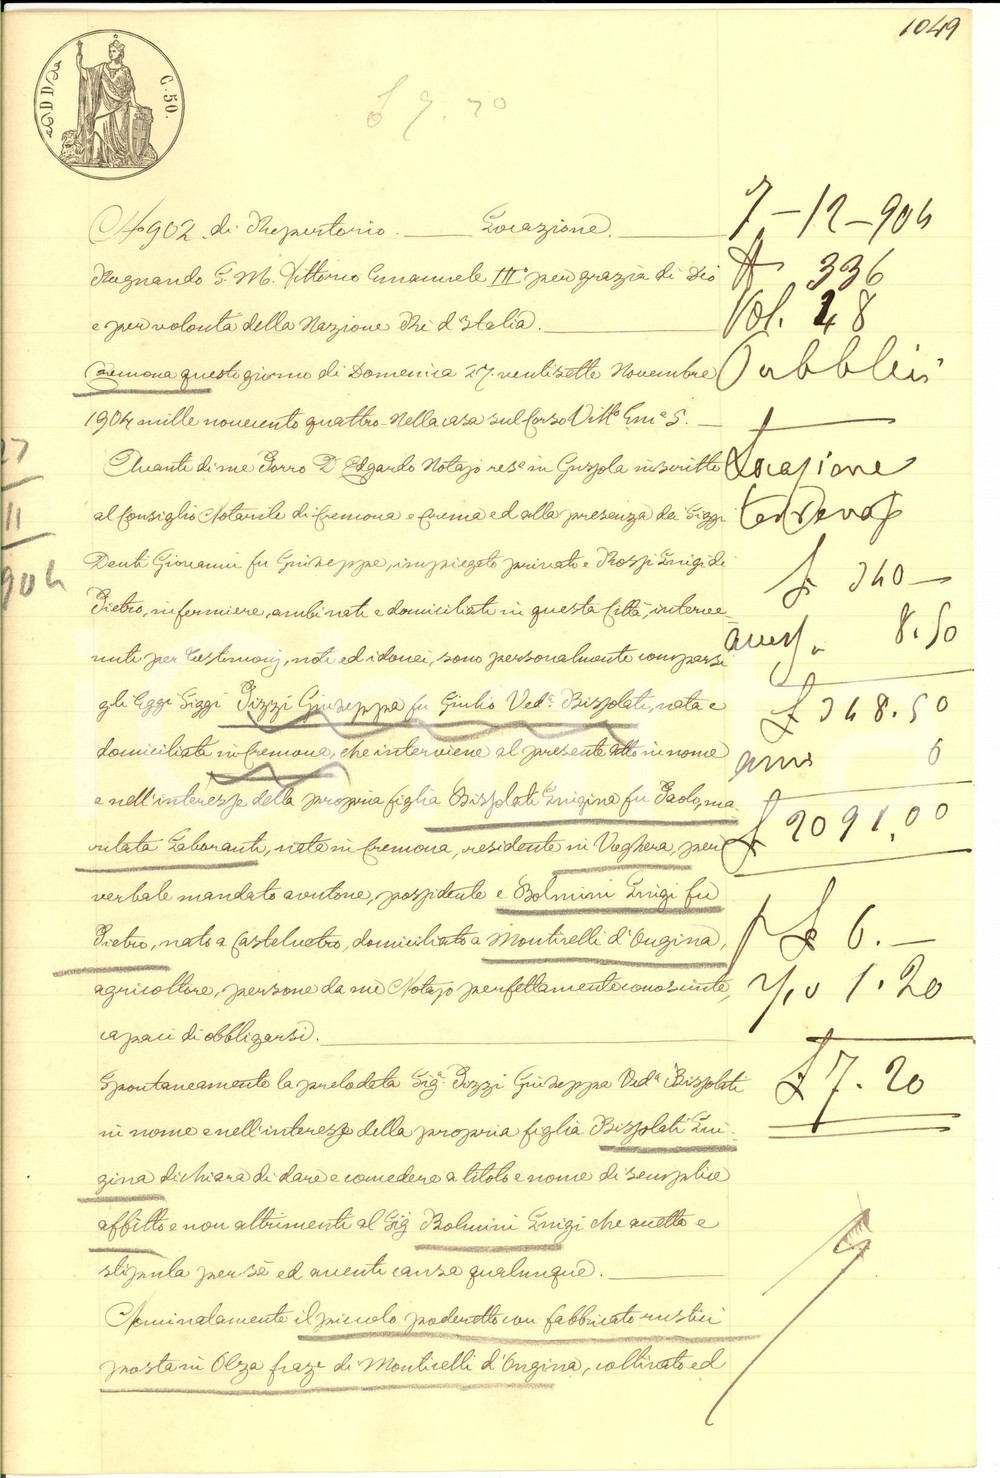 1049
C. 50.
£ 7.20
N° 902 di Repertorio. Locazione.
Regnando S. M. Vittorio Emanuele III° per grazia di Dio
e per volontà della Nazione Re d'Italia.
Cremona questo giorno di Domenica 27. ventisette Novembre
1904 mille novecento quattro. Nella casa sul Corso Vitt° Em° 5.
Avanti di me Porro Dr Edgardo Notajo rese in Gussola inscritto
al Consiglio Notarile di Cremona e Crema ed alla presenza dei Siggi
Denti Giovanni fu Giuseppe, impiegato privato e Rossi Luigi di
Pietro, infermiere, ambi nati e domiciliati in questa Città, interve-
nuti per testimonj, noti ed idonei, sono personalmente comparsi
gli Siggi Pizzi Giuseppa fu Giulio Ved.a Bissolati, nata e
domiciliata in Cremona, che interviene al presente atto in nome
e nell'interesse della propria figlia Bissolati Luigina fu Paolo, ma-
ritata Laboranti, nata in Cremona, residente in Voghera, per
verbale mandato avutone, possidente e Bolmini Luigi fu
Pietro, nato a Castelvetro, domiciliato a Monticelli d'Ongina,
agricoltore, persone da me Notajo perfettamente conosciute,
capaci di obbligarsi.
Spontaneamente la prelodata Sig.a Pizzi Giuseppa Ved.a Bissolati
in nome e nell'interesse della propria figlia Bissolati Lui-
gina dichiara di dare e concedere a titolo e nome di semplice
affitto e non altrimenti al Sig Bolmini Luigi che accetta e
stipula per sè ed aventi causa qualunque.
Nominatamente il piccolo poderetto con fabbricato rustici
posta in Olza fraz.e di Monticelli d'Ongina, coltivato ed
7-12-904
N 336
Vol. 28
Pubblici
Locazione
£ 340 —
8.50
£ 348.50
anni 6
£ 2091,00
£ 6. —
1.20
£ 7.20
27
11
904